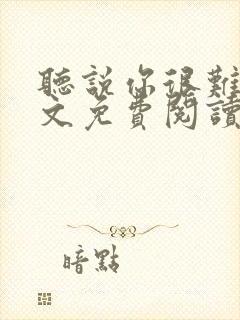 聽說你很難
文免費閱讀
暗點